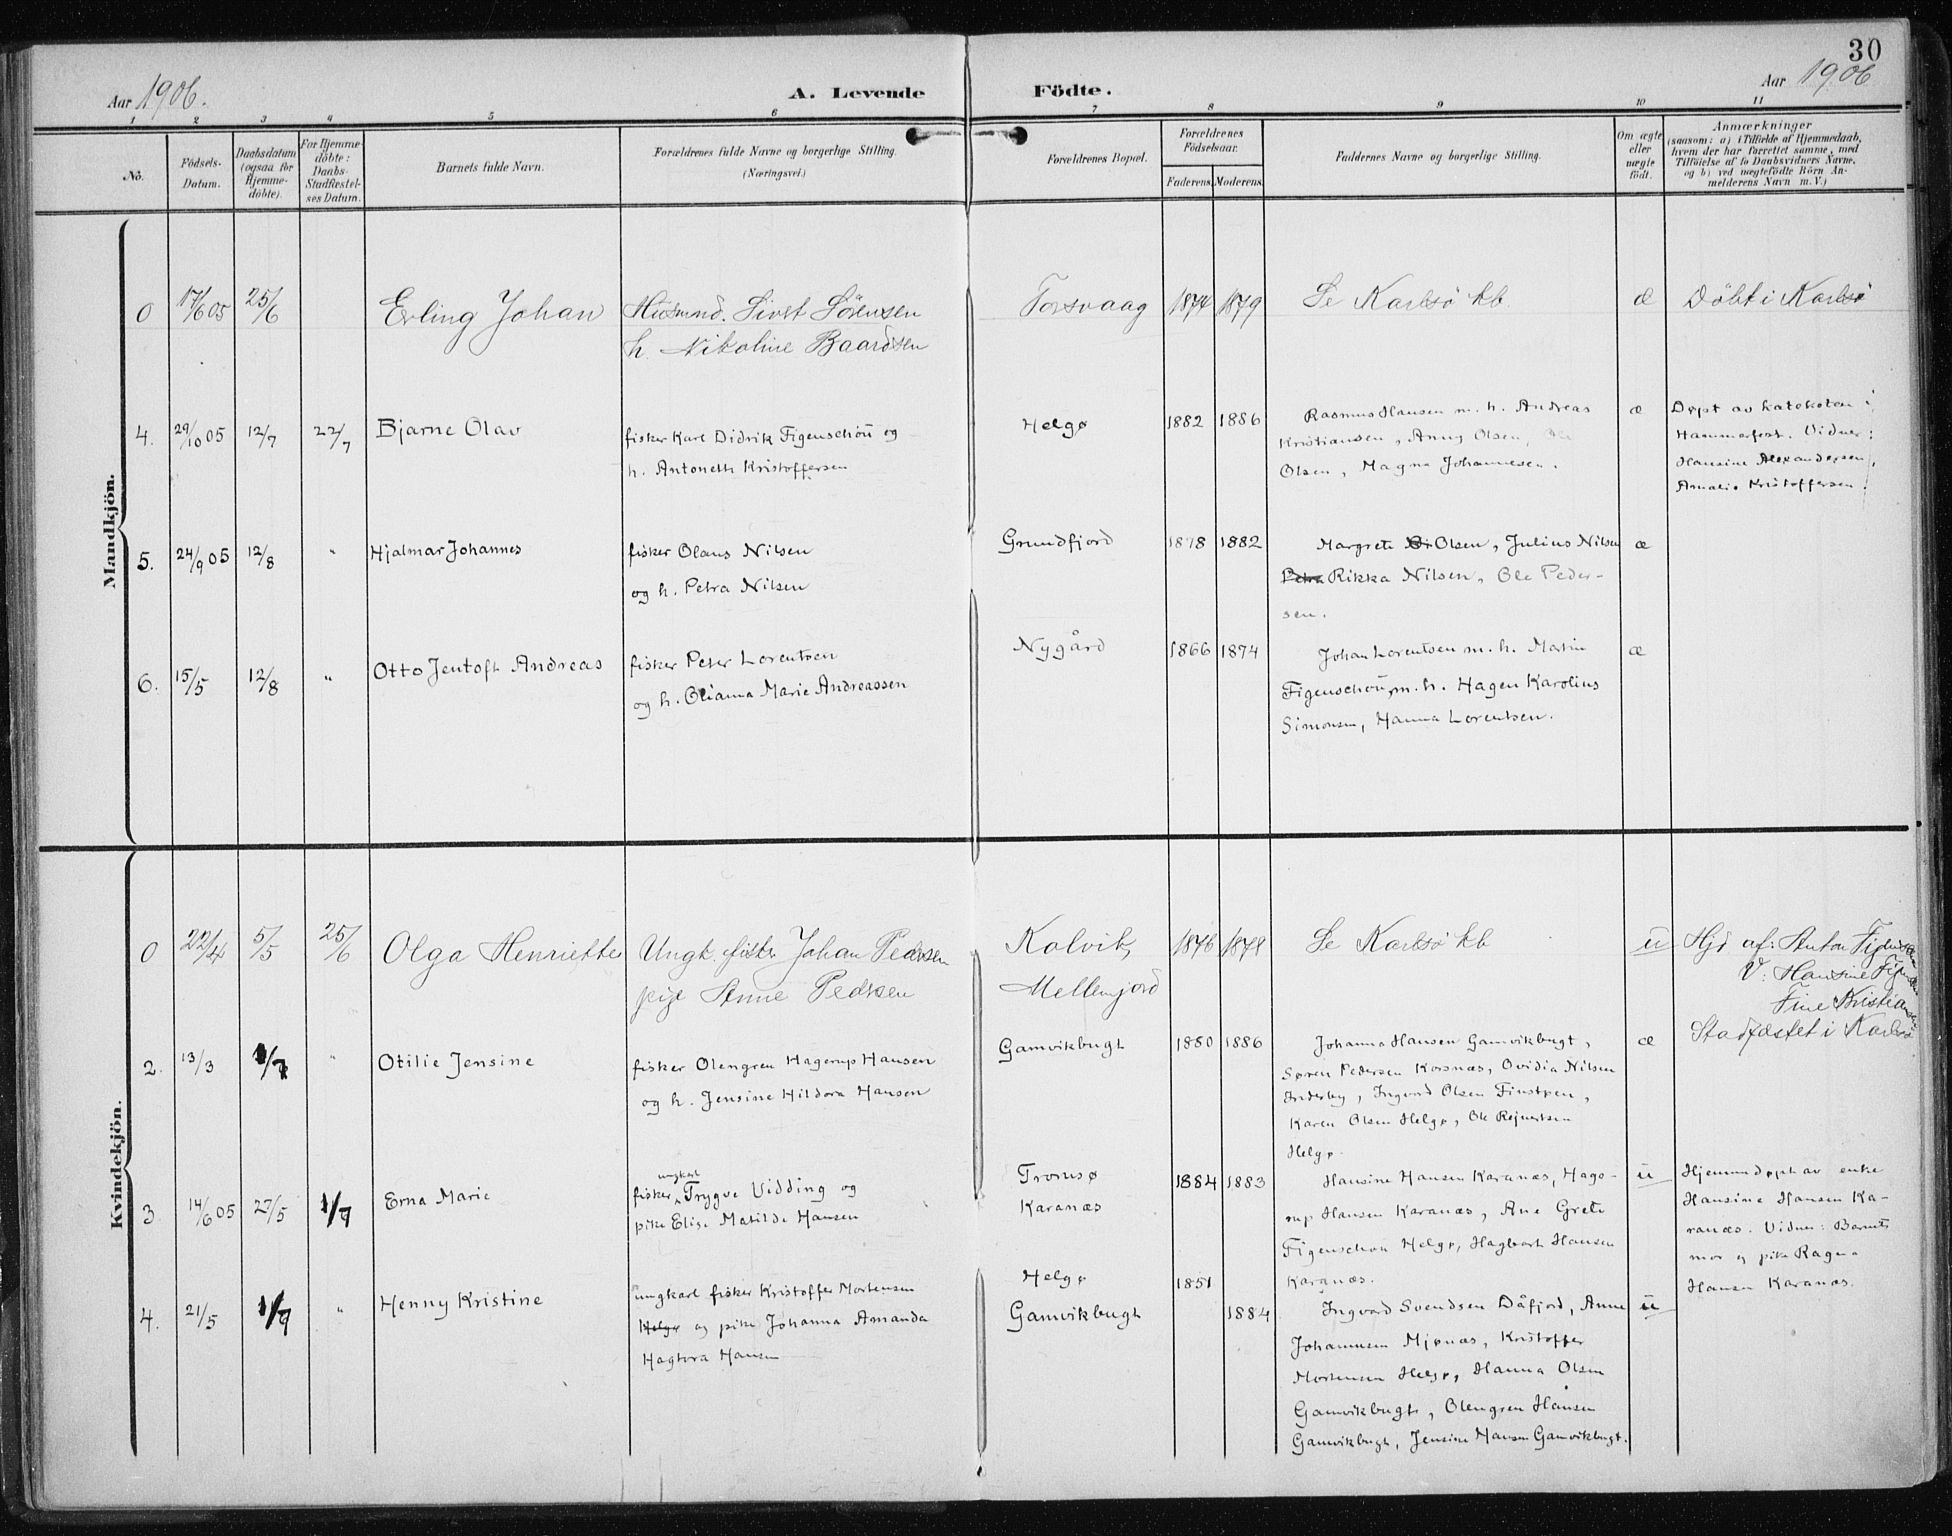 30
Aar 1906.
A. Levende Födte.
Aar 1906
1 2 3 4 5 6 7 8 9 10 11
No.
Födsels-
Datum.
Daabsdatum
(ogsaa for
Hjemme-
döbte).
For Hjemme-
döbte:
Daabs-
Stadfæstel-
ses Datum.
Barnets fulde Navn.
Forældrenes fulde Navne og borgerlige Stilling.
(Næringsvei.)
Forældrenes Bopæl.
Forældrenes
Födselsaar.
Faderens.
Moderens.
Faddernes Navne og borgerlige Stilling.
Om ægte
eller
uægte
födt.
Anmærkninger
(saasom: a) i Tilfælde af Hjemmedaab,
hvem der har forrettet samme, med
Tilföielse af to Daabsvidners Navne,
og b) ved uægtefödte Börn An-
melderens Navn m. V.)
Mandkjön.
0 17/6 05 25/6 Erling Johan
Husmnd. Sivert Sörensen
h. Nikoline Baardsen
Torsvaag 1874 1879
Se Karlsö kb.
æ
Döbt i Karlsö
4. 29/10 05 12/7 22/7 Bjarne Olav
fisker Karl Didrik Figenschöu og
h. Antoneth Kristoffersen
Helgø 1882 1886
Rasmus Hansen m. h. Andreas
Kristiansen, Anny Olsen, Ole
Olsen, Magna Johannesen.
æ
Døpt av katekoten i
Hammerfest. Vidner:
Hansine Alexandersen,
Amalie Kristoffersen.
5. 24/9 05 12/8 " Hjalmar Johannes
fisker Olaus Nilsen
og h. Petra Nilsen
Grundfjord 1878 1882
Margrete Olsen, Julius Nilsen
Petra Rikka Nilsen, Ole Peder-
sen.
æ
6. 15/5 12/8 " Otto Jentoft Andreas
fisker Peter Lorentsen
og h. Olianna Marie Andreassen
Nygård 1866 1874
Johan Lorentsen m. h. Martin
Figenschou, m. h. Hagen Karolius
Simonsen, Hanna Lorentsen.
æ
Kvindekjön.
0 22/4 5/5 25/6 Olga Henriette
Ungk. fisker Johan Pedersen
pige Anne Pedersen
Kolvik,
Mellemjord
1876 1878
Se Karlsö kb
u
Hjd. af: Anton Figensch
V: Hansine Figen
Fine Kristiansen
Stadfæstet i Karlsö
2. 13/3 1/7 " Otilie Jensine
fisker Olengren Hagerup Hansen
og h. Jensine Hildora Hansen
Gamvikbugt 1880 1886
Johanna Hansen Gamvikbugt,
Søren Pedersen Korsnæs, Ovidia Nilsen
Inderby, Ingvord Olsen Finstpen,
Karen Olsen Helgø, Ole Rejnertsen
Helgø.
æ
3. 14/6 05 27/5 1/7 Erna Marie
ungkarl
fisker Trygve Vidding og
pike Elise Matilde Hansen
Tromsø
Karanæs
1884 1883
Hansine Hansen Karanæs, Hage-
rup Hansen Karanæs, Ane Grete
Figenschou Helgø, Hagbart Hansen
Karanæs.
u
Hjemmedøpt av enke
Hansine Hansen Ka-
ranæs. Vidner: Barnets
mor og pike Ragna
Hansen Karanæs.
4. 21/5 1/7 " Henny Kristine
ungkarl fisker Kristoffer Mortensen
Helgø og pike Johanna Amanda
Hagtora Hansen
Helgø
Gamvikbugt
1851
1884
Ingvord Svendsen Dåfjord, Anne
Johannesen Mjønæs, Kristoffer
Mortensen Helgø, Hanna Olsen
Gamvikbugt, Olengren Hansen
Gamvikbugt, Jensine Hansen Gamvikbugt.
u